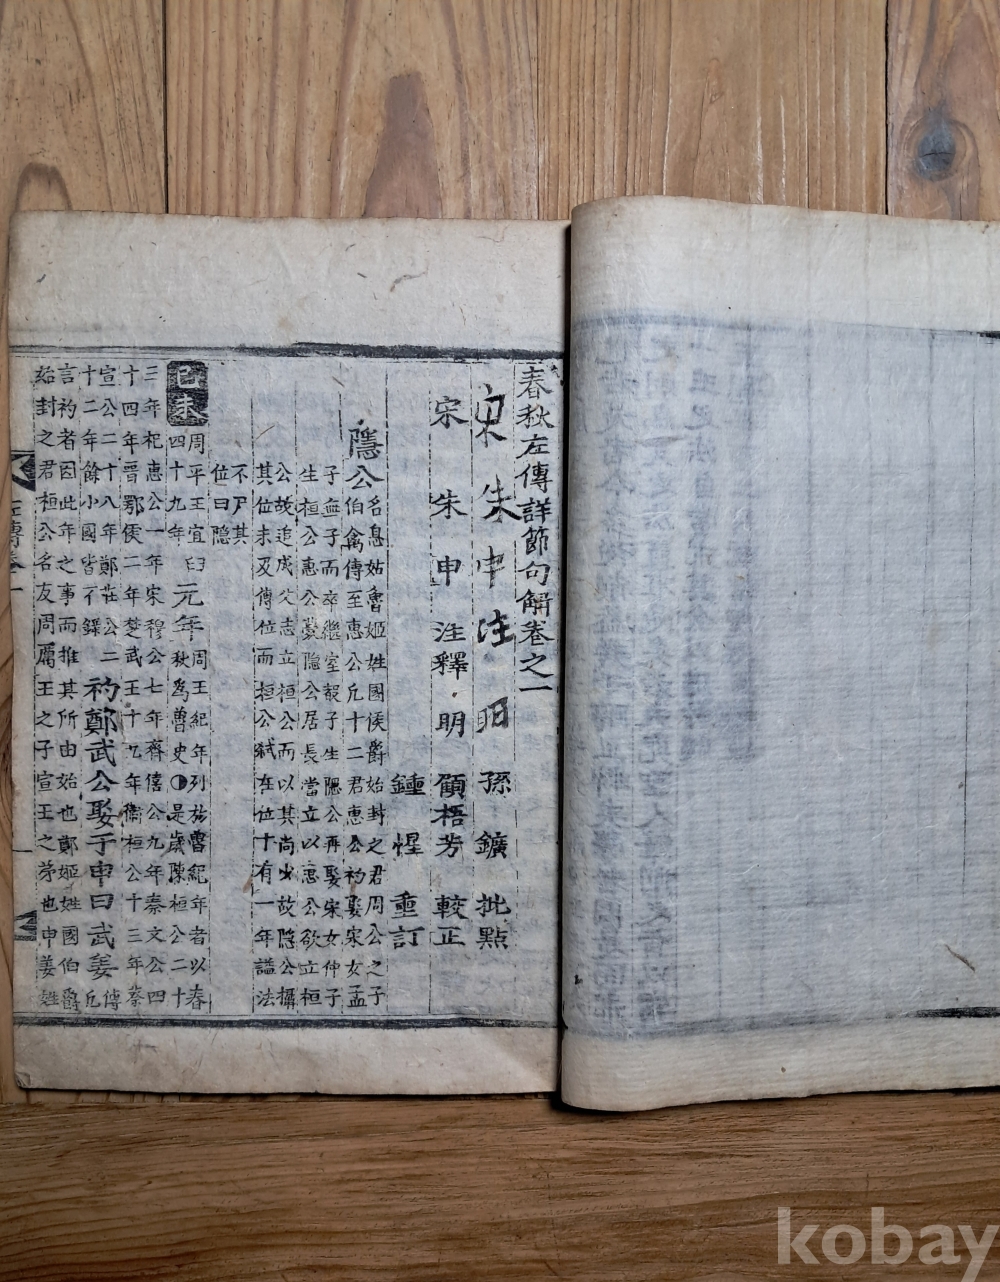 春秋左傳詳節句解卷之一
宋朱申注 明 孫鑛 批點
宋 朱申 注釋 明 顧梧芳 較正
鍾惺 重訂
隱公
名息姑魯姬姓國侯爵始封之君周公之子
伯禽傳至惠公凡十二君惠公初娶宋女孟
子無子而卒繼室聲子生隱公再娶宋女仲子
生桓公惠公薨隱公居長當立以惠公欲立桓
公故追成父志立桓公而以其尚少故隱公攝
其位未及傳位而桓公弒在位十有一年謚法
不尸其
位曰隱
己未
周平王宜臼
四十九年
元年
周王紀年列於魯紀年者以春
秋為魯史是歲陳桓公二十
三年杞惠公一年宋穆公七年齊僖公九年秦文公四
十四年晉鄂侯二年楚武王十九年衛桓公十三年蔡
宣公二十八年鄭莊公二
十二年餘小國皆不錄
初鄭武公娶于申曰武姜
傳凡
言初者因此年之事而推其所由始也鄭姬姓國伯爵
始封之君桓公名友周厲王之子宣王之弟也申姜姓
左傳卷一
kobay